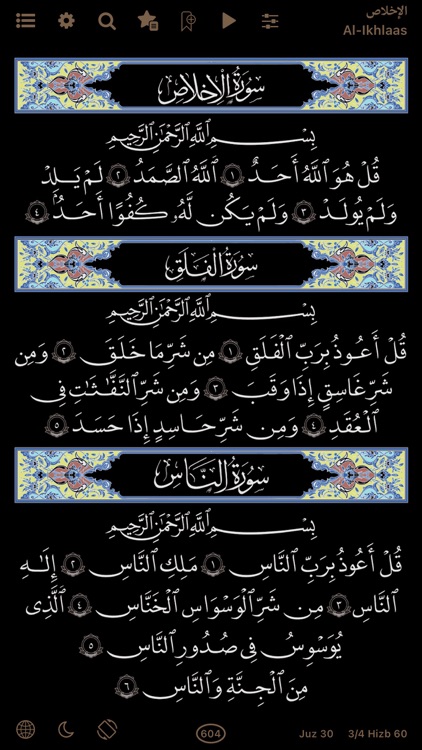 الإخلاص
Al-Ikhlaas
سُورَةُ الإِخْلَاصِ
بِسْمِ ٱللَّهِ ٱلرَّحْمَٰنِ ٱلرَّحِيمِ
قُلْ هُوَ ٱللَّهُ أَحَدٌ ١ ٱللَّهُ ٱلصَّمَدُ ٢ لَمْ يَلِدْ
وَلَمْ يُولَدْ ٣ وَلَمْ يَكُن لَّهُۥ كُفُوًا أَحَدٌۢ ٤
سُورَةُ الْفَلَقِ
بِسْمِ ٱللَّهِ ٱلرَّحْمَٰنِ ٱلرَّحِيمِ
قُلْ أَعُوذُ بِرَبِّ ٱلْفَلَقِ ١ مِن شَرِّ مَا خَلَقَ ٢ وَمِن
شَرِّ غَاسِقٍ إِذَا وَقَبَ ٣ وَمِن شَرِّ ٱلنَّفَّٰثَٰتِ فِى
ٱلْعُقَدِ ٤ وَمِن شَرِّ حَاسِدٍ إِذَا حَسَدَ ٥
سُورَةُ النَّاسِ
بِسْمِ ٱللَّهِ ٱلرَّحْمَٰنِ ٱلرَّحِيمِ
قُلْ أَعُوذُ بِرَبِّ ٱلنَّاسِ ١ مَلِكِ ٱلنَّاسِ ٢ إِلَٰهِ
ٱلنَّاسِ ٣ مِن شَرِّ ٱلْوَسْوَاسِ ٱلْخَنَّاسِ ٤ ٱلَّذِى
يُوَسْوِسُ فِى صُدُورِ ٱلنَّاسِ ٥
مِنَ ٱلْجِنَّةِ وَٱلنَّاسِ ٦
604 Juz 30 3/4 Hizb 60